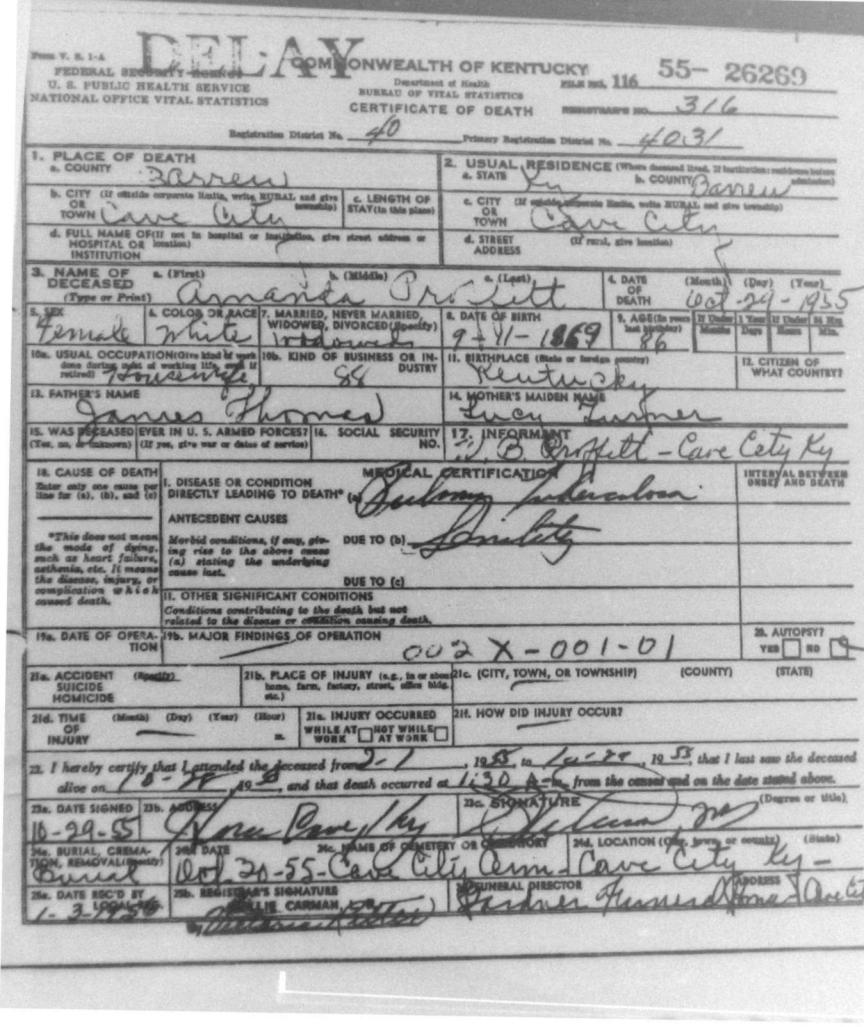 DELAY
Form V. S. 1-A
COMMONWEALTH OF KENTUCKY
FILE NO. 116 55- 26269
FEDERAL SECURITY AGENCY
U. S. PUBLIC HEALTH SERVICE
NATIONAL OFFICE VITAL STATISTICS
Department of Health
BUREAU OF VITAL STATISTICS
CERTIFICATE OF DEATH
REGISTRAR'S NO. 316
Registration District No. 40 Primary Registration District No. 4031
1. PLACE OF DEATH
a. COUNTY Barren
2. USUAL RESIDENCE (Where deceased lived. If institution: residence before admission)
a. STATE Ky b. COUNTY Barren
b. CITY (If outside corporate limits, write RURAL and give township)
OR TOWN Cave City
c. LENGTH OF STAY (in this place)
c. CITY (If outside corporate limits, write RURAL and give township)
OR TOWN Cave City
d. FULL NAME OF (If not in hospital or institution, give street address or location)
HOSPITAL OR INSTITUTION
d. STREET ADDRESS (If rural, give location)
3. NAME OF DECEASED (Type or Print)
a. (First) b. (Middle) c. (Last)
Amanda Proffitt
4. DATE OF DEATH (Month) (Day) (Year)
Oct-29-1955
5. SEX Female
6. COLOR OR RACE White
7. MARRIED, NEVER MARRIED, WIDOWED, DIVORCED (Specify) Widowed
8. DATE OF BIRTH 9-11-1869
9. AGE (In years last birthday) 86
If Under 1 Year Months Days
If Under 24 Hrs Hours Min.
10a. USUAL OCCUPATION (Give kind of work done during most of working life, even if retired) Housewife
10b. KIND OF BUSINESS OR INDUSTRY 88
11. BIRTHPLACE (State or foreign country) Kentucky
12. CITIZEN OF WHAT COUNTRY?
13. FATHER'S NAME James Thomas
14. MOTHER'S MAIDEN NAME Lucy Turner
15. WAS DECEASED EVER IN U. S. ARMED FORCES?
(Yes, no, or unknown) (If yes, give war or dates of service)
16. SOCIAL SECURITY NO.
17. INFORMANT B Proffitt - Cave City Ky
18. CAUSE OF DEATH
Enter only one cause per line for (a), (b), and (c)
MEDICAL CERTIFICATION
INTERVAL BETWEEN ONSET AND DEATH
I. DISEASE OR CONDITION DIRECTLY LEADING TO DEATH* (a) Pulmonary tuberculosis
*This does not mean the mode of dying, such as heart failure, asthenia, etc. It means the disease, injury, or complication which caused death.
ANTECEDENT CAUSES
Morbid conditions, if any, giving rise to the above cause (a) stating the underlying cause last.
DUE TO (b) Senility
DUE TO (c)
II. OTHER SIGNIFICANT CONDITIONS
Conditions contributing to the death but not related to the disease or condition causing death.
19a. DATE OF OPERATION
19b. MAJOR FINDINGS OF OPERATION
002 X-001-01
20. AUTOPSY? YES NO
21a. ACCIDENT SUICIDE HOMICIDE (Specify)
21b. PLACE OF INJURY (e.g., in or about home, farm, factory, street, office bldg. etc.)
21c. (CITY, TOWN, OR TOWNSHIP) (COUNTY) (STATE)
21d. TIME OF INJURY (Month) (Day) (Year) (Hour) m.
21e. INJURY OCCURRED
WHILE AT WORK NOT WHILE AT WORK
21f. HOW DID INJURY OCCUR?
22. I hereby certify that I attended the deceased from 2-1, 1955, to 10-29, 1955, that I last saw the deceased
alive on 10-28, 1955, and that death occurred at 1:30 A m., from the causes and on the date stated above.
23a. DATE SIGNED 10-29-55
23b. ADDRESS Horse Cave, Ky
23c. SIGNATURE (Degree or title) MD
24a. BURIAL, CREMATION, REMOVAL (Specify) Burial
24b. DATE Oct. 30-55
24c. NAME OF CEMETERY OR CREMATORY Cave City Cem
24d. LOCATION (City, town, or county) (State) Cave City Ky
25a. DATE REC'D BY LOCAL REG. 1-3-1956
25b. REGISTRAR'S SIGNATURE
CARMAN
FUNERAL DIRECTOR ADDRESS
Gardner Funeral Home Cave City